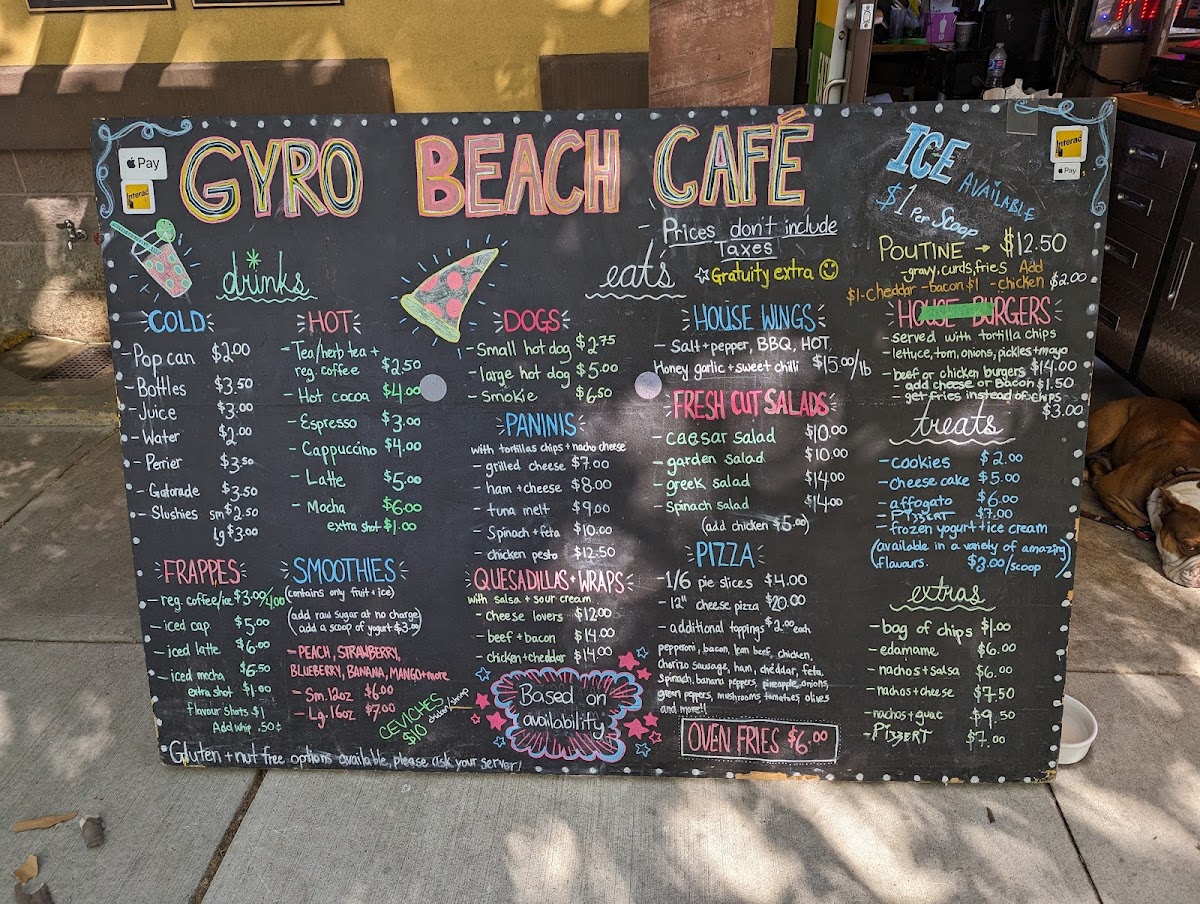 GYRO BEACH CAFÉ
Pay
Interac
ICE AVAILABLE
$1 Per Scoop
Interac
Pay
Prices don't include
Taxes
☆Gratuity extra ☺
drinks
COLD
- Pop can $2.00
- Bottles $3.50
- Juice $3.00
- Water $2.00
- Perrier $3.50
- Gatorade $3.50
- Slushies sm $2.50
Lg $3.00
HOT
- Tea/herb tea +
reg. coffee $2.50
- Hot cocoa $4.00
- Espresso $3.00
- Cappuccino $4.00
- Latte $5.00
- Mocha $6.00
extra shot $1.00
FRAPPES
- reg. coffee/ice $3.00/4.00
- iced cap $5.00
- iced latte $6.00
- iced mocha $6.50
extra shot $1.00
flavour shots $1
Add whip .50¢
SMOOTHIES
(contains only fruit + ice)
(add raw sugar at no charge)
(add a scoop of yogurt $3.00)
- PEACH, STRAWBERRY,
BLUEBERRY, BANANA, MANGO + more
- Sm. 12oz $6.00
- Lg. 16oz $7.00
CEVICHES
$10 chicken/shrimp
Gluten + nut free options available, please ask your server!
eats
DOGS
- Small hot dog $2.75
- large hot dog $5.00
- Smokie $6.50
PANINIS
with tortillas chips + nacho cheese
- grilled cheese $7.00
- ham + cheese $8.00
- tuna melt $9.00
- Spinach + feta $10.00
- chicken pesto $12.50
QUESADILLAS + WRAPS
with salsa + sour cream
- cheese lovers $12.00
- beef + bacon $14.00
- chicken + cheddar $14.00
Based on
availability
HOUSE WINGS
- Salt + pepper, BBQ, HOT
Honey garlic + sweet chilli $15.00/lb
FRESH CUT SALADS
- caesar salad $10.00
- garden salad $10.00
- greek salad $14.00
- spinach salad $14.00
(add chicken $5.00)
PIZZA
- 1/6 pie slices $4.00
- 12" cheese pizza $20.00
- additional toppings $2.00 each
pepperoni, bacon, lean beef, chicken,
chorizo sausage, ham, cheddar, feta,
spinach, banana peppers, pineapple, onions,
green peppers, mushrooms, tomatoes, olives
and more!!
OVEN FRIES $6.00
POUTINE → $12.50
- gravy, curds, fries Add
$1 - cheddar - bacon $1 - chicken $2.00
HOUSE BURGERS
- served with tortilla chips
- lettuce, tom, onions, pickles + mayo
- beef or chicken burgers $14.00
- add cheese or Bacon $1.50
- get fries instead of chips
$3.00
treats
- cookies $2.00
- cheese cake $5.00
- affogato $6.00
- PIZZERT $7.00
- frozen yogurt + ice cream
(available in a variety of amazing
flavours. $3.00/scoop)
extras
- bag of chips $1.00
- edamame $6.00
- nachos + salsa $6.00
- nachos + cheese $7.50
- nachos + guac $9.50
- PIZZERT $7.00